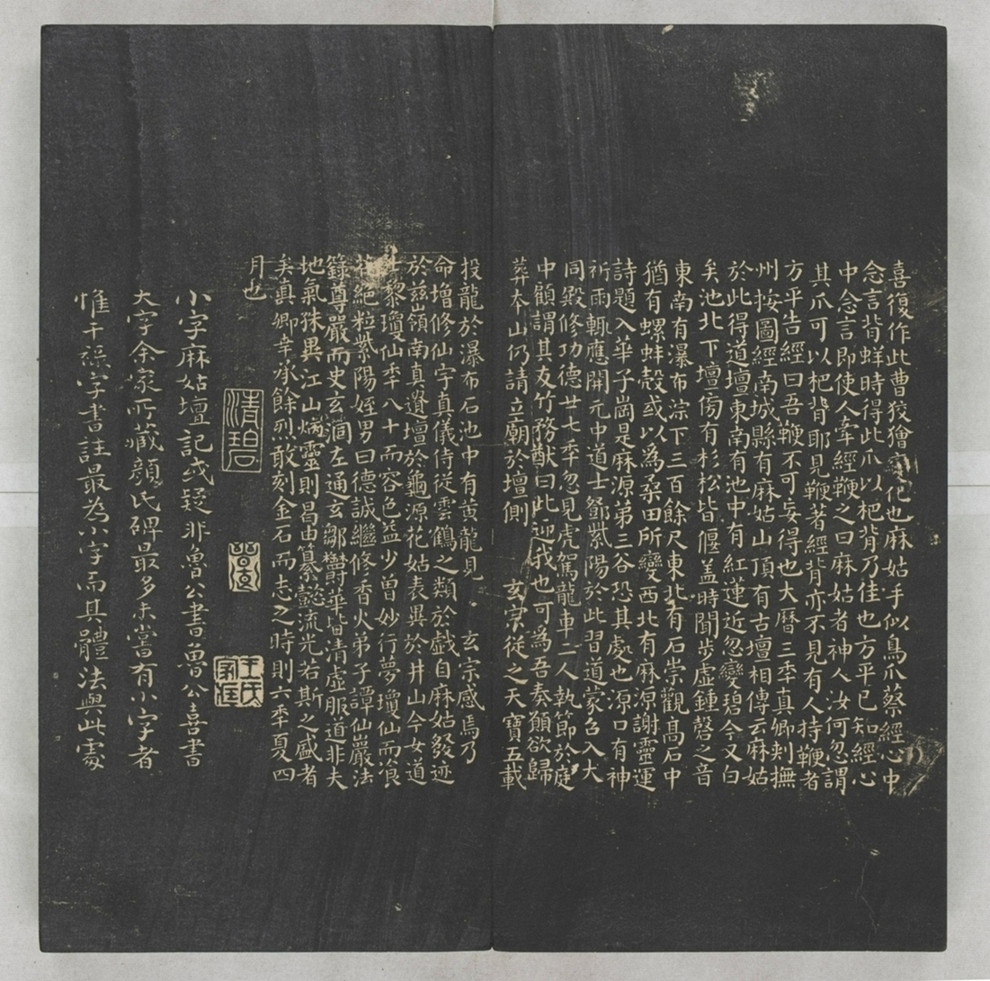 喜復作此曹狡獪變化也麻姑手似鳥爪蔡經心中
念言背蛘時得此爪以杷背乃佳也方平已知經心
中念言即使人牽經鞭之曰麻姑者神人汝何忽謂
其爪可以杷背耶見鞭著經背亦不見有人持鞭者
方平告經曰吾鞭不可妄得也大曆三年真卿刺撫
州按圖經南城縣有麻姑山頂有古壇相傳云麻姑
於此得道壇東南有池中有紅蓮近忽變碧今又白
矣池北下壇傍有杉松皆偃蓋時聞步虛鍾磬之音
東南有瀑布淙下三百餘尺東北有石崇觀高石中
猶有螺蚌殼或以為桑田所變西北有麻源謝靈運
詩題入華子崗是麻源第三谷恐其處也源口有神
祈雨輒應開元中道士鄧紫陽於此習道蒙召入大
同殿修功德廿七年忽見虎駕龍車二人執節於庭
中顧謂其友竹務猷曰此迎我也可為吾奏願欲歸
葬本山仍請立廟於壇側 玄宗從之天寶五載
投龍於瀑布石池中有黃龍見 玄宗感焉乃
命增修仙宇真儀侍從雲鶴之類於戲自麻姑發迹
於茲嶺南真遺壇於龜源花姑表異於井山今女道
士黎瓊仙年八十而容色益少曾妙行夢瓊仙而飡
花絕粒紫陽姪男曰德誠繼修香火弟子譚仙巖法
籙尊嚴而史玄洞左通玄鄒鬱華皆清虛服道非夫
地氣殊異江山炳靈則曷由纂懿流光若斯之盛者
矣真卿幸承餘烈敢刻金石而志之時則六年夏四
月也
清碧
王氏家藏
小字麻姑壇記或疑非魯公書魯公喜書
大字余家所藏顏氏碑最多未嘗有小字者
惟干祿字書註最為小字而其體法與此處